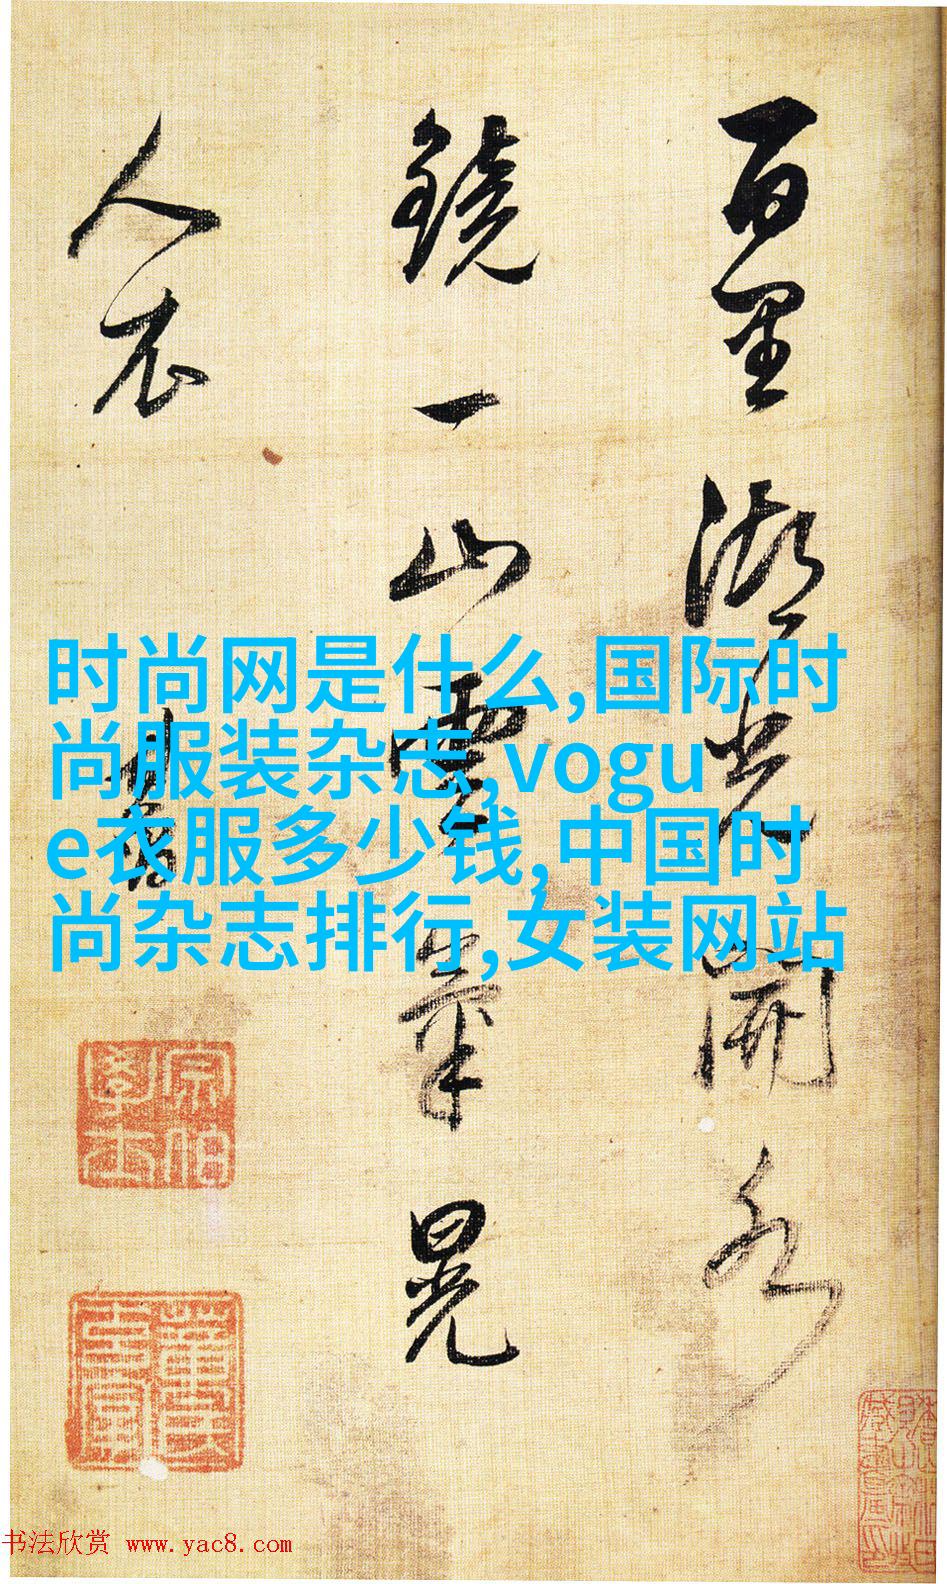 百里湖光開水
鏡一山雲氣晃
人衣
宗伯學士
董氏玄宰
时尚网是什么,国际时
尚服装杂志,vogu
e衣服多少钱,中国时
尚杂志排行,女装网站
书法欣赏 www.yac8.com